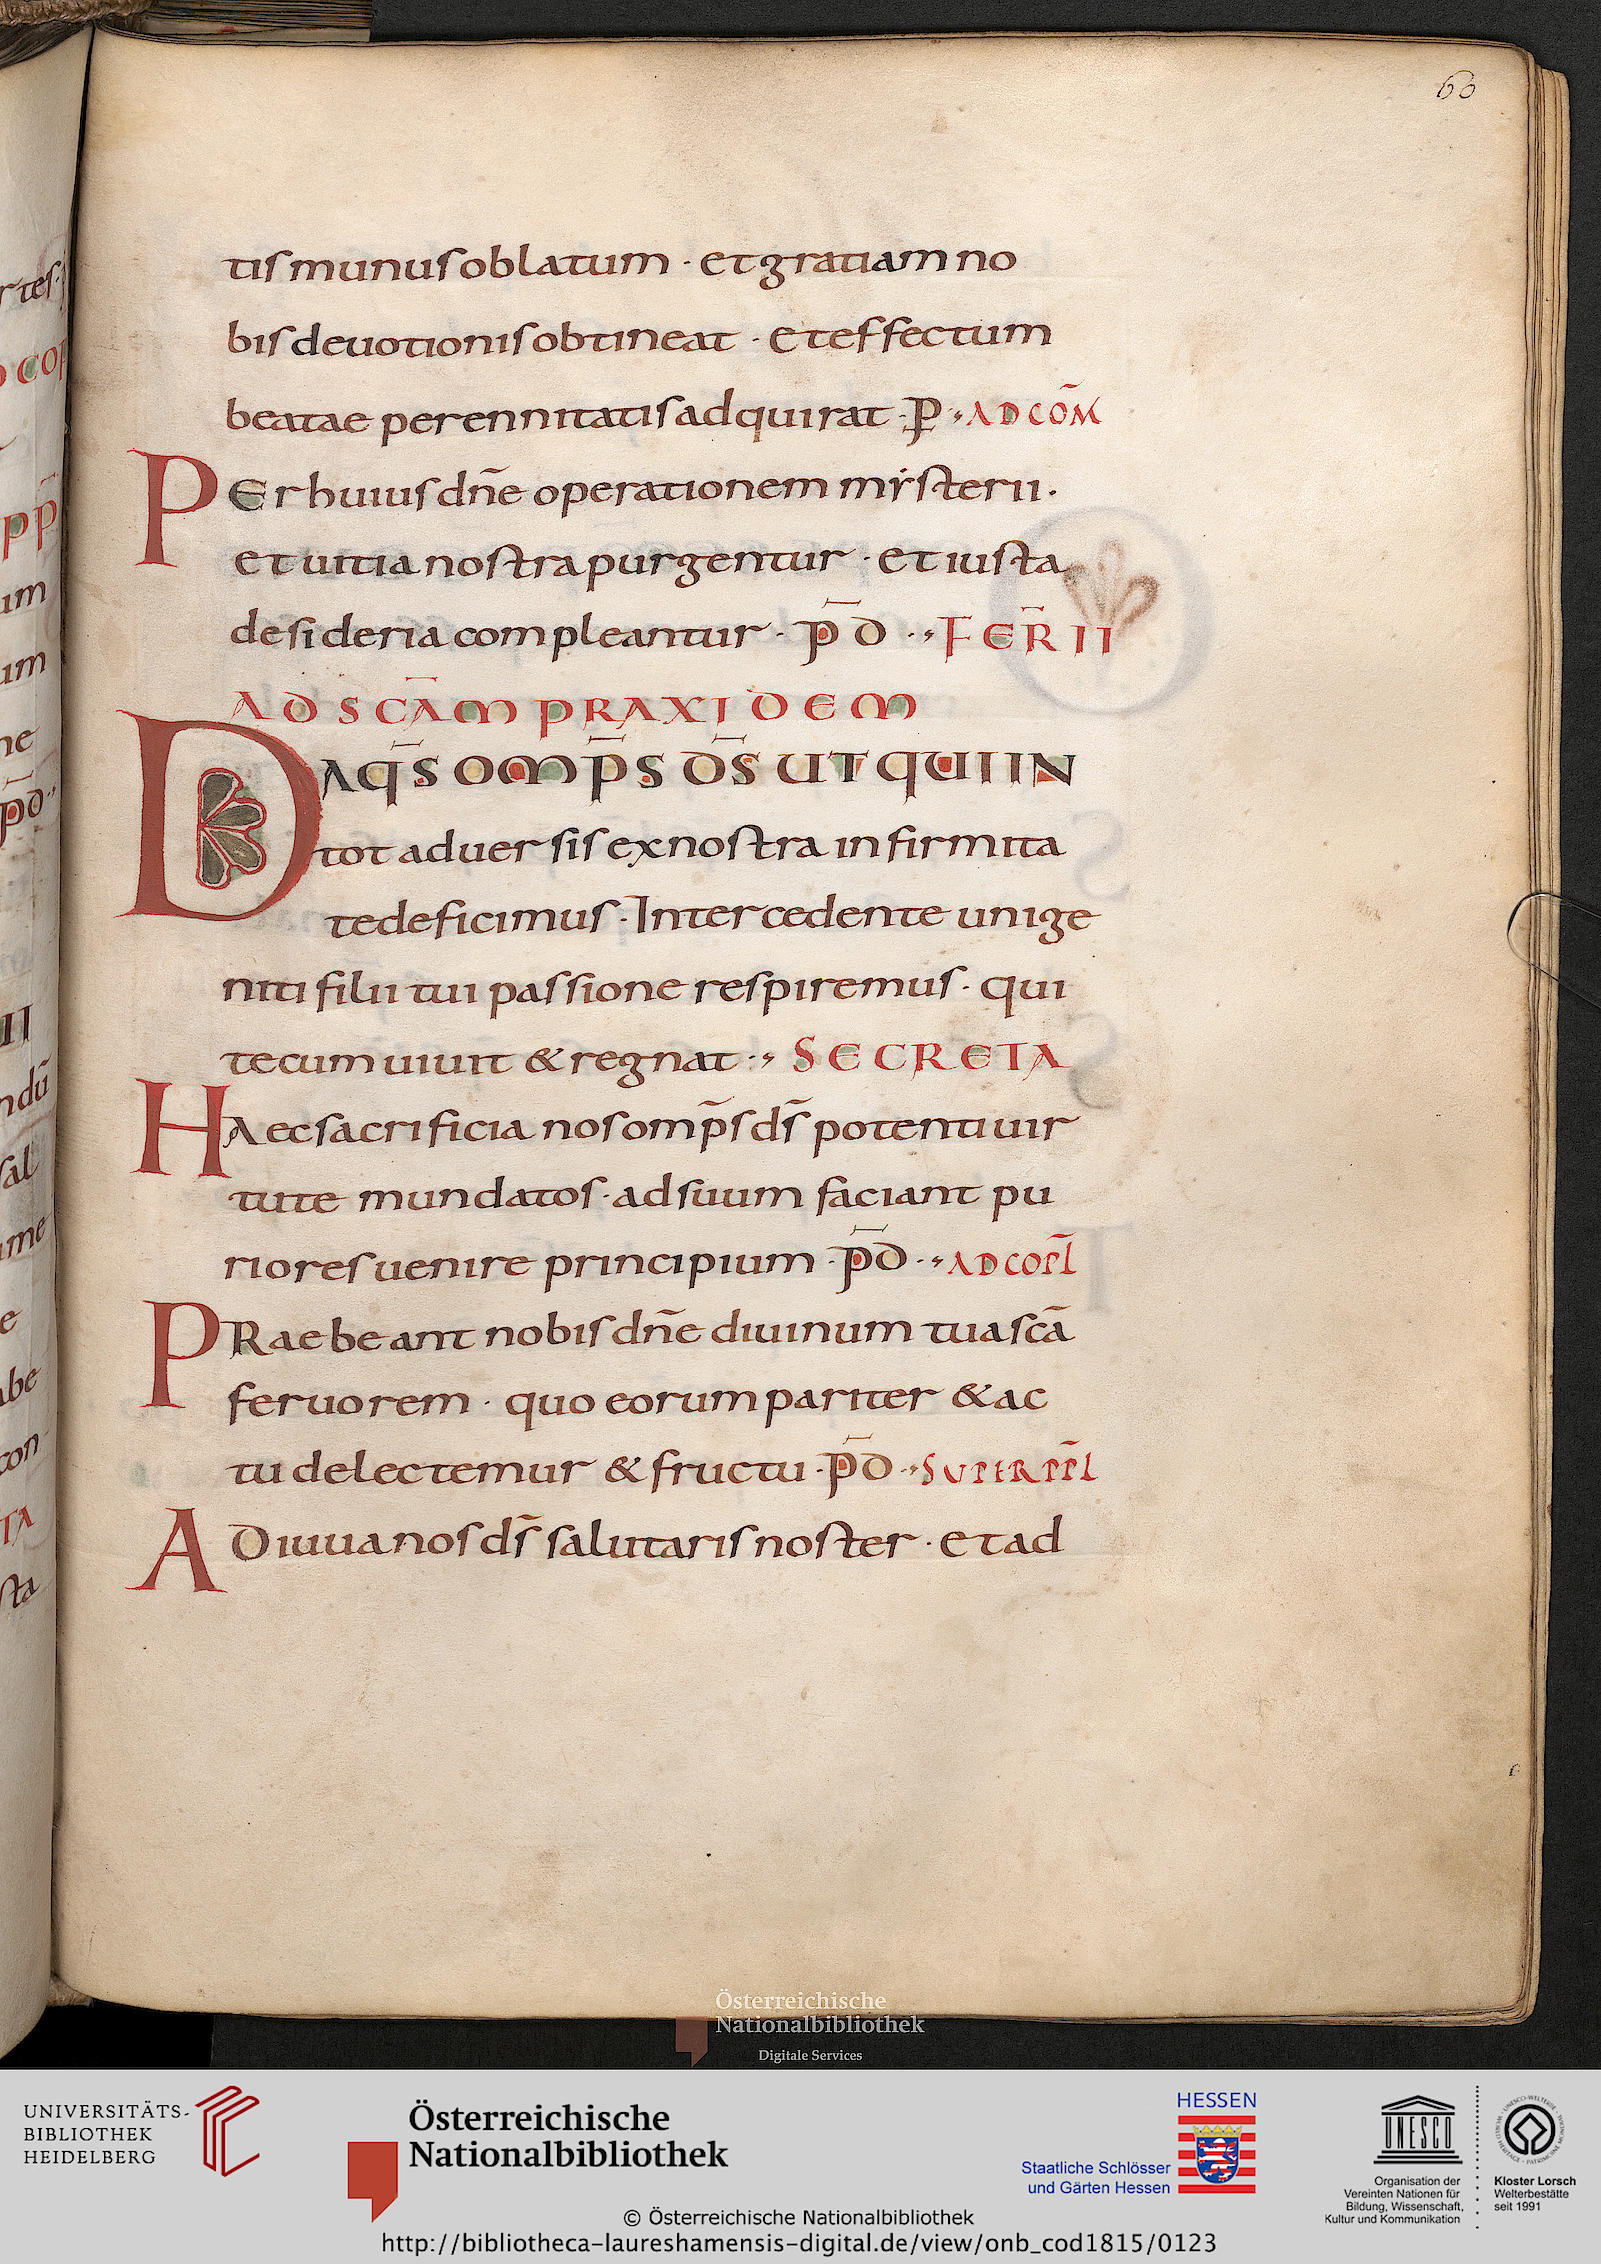 60
tis munus oblatum · et gratiam no
bis deuotionis obtineat · et effectum
beatae perennitatis adquirat · p̄ ·, AD COM̄
PEr huius dn̄e operationem mysterii ·
et uitia nostra purgentur · et iusta
desideria compleantur · p̄ d ·, FER̄ II
AD SCĀM PRAXIDEM
DA QS̄ OMP̄S DS̄ UT QUI IN
tot aduersis ex nostra infirmita
te deficimus · Intercedente unige
niti filii tui passione respiremus · qui
tecum uiuit & regnat ·, SECRETA
HAec sacrificia nos omp̄s ds̄ potenti uir
tute mundatos · ad suum faciant pu
riores uenire principium · p̄d ·, AD COPL̄
PRaebeant nobis dn̄e diuinum tua scā
feruorem · quo eorum pariter & ac
tu delectemur & fructu · p̄d ·, SUPER PPL̄
ADiuua nos ds̄ salutaris noster · et ad
Österreichische
Nationalbibliothek
Digitale Services
UNIVERSITÄTS-
BIBLIOTHEK
HEIDELBERG
Österreichische
Nationalbibliothek
HESSEN
Staatliche Schlösser
und Gärten Hessen
UNESCO
Organisation der
Vereinten Nationen für
Bildung, Wissenschaft,
Kultur und Kommunikation
Kloster Lorsch
Welterbestätte
seit 1991
© Österreichische Nationalbibliothek
http://bibliotheca-laureshamensis-digital.de/view/onb_cod1815/0123